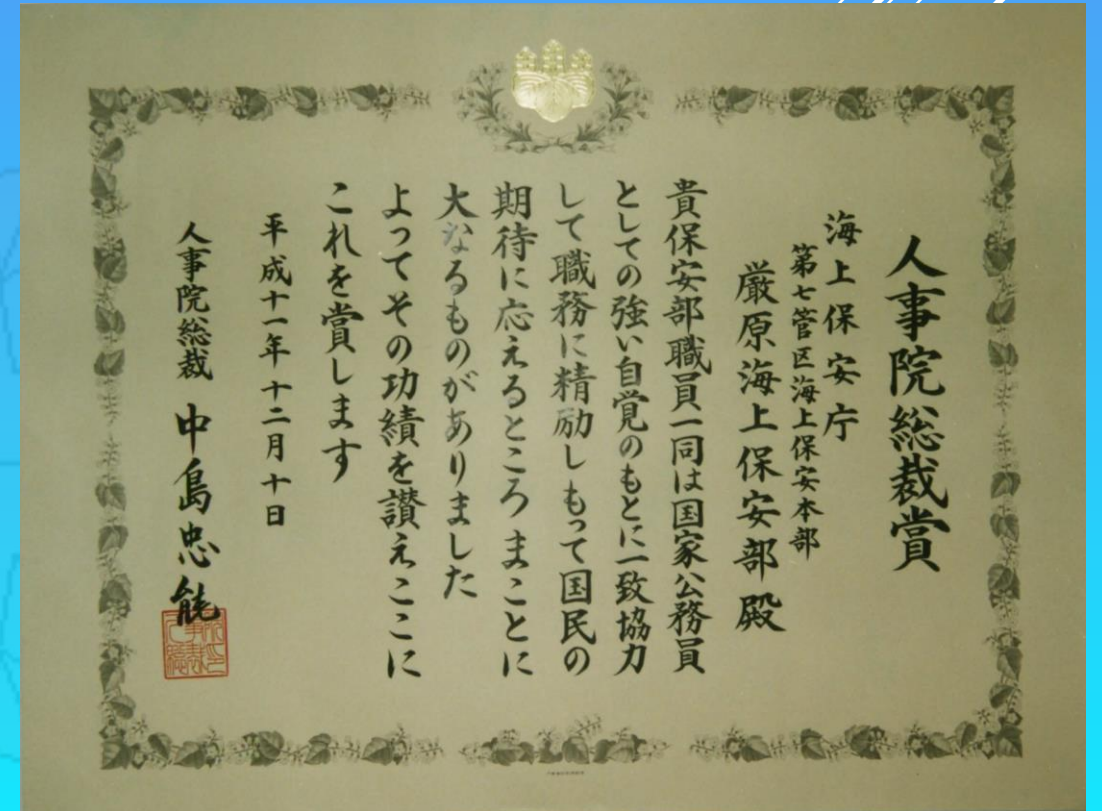 人事院総裁賞
海上保安庁
第七管区海上保安本部
厳原海上保安部殿
貴保安部職員一同は国家公務員
としての強い自覚のもとに一致協力
して職務に精励しもって国民の
期待に応えるところまことに
大なるものがありました
よってその功績を讃えここに
これを賞します
平成十一年十二月十日
人事院総裁 中島忠能